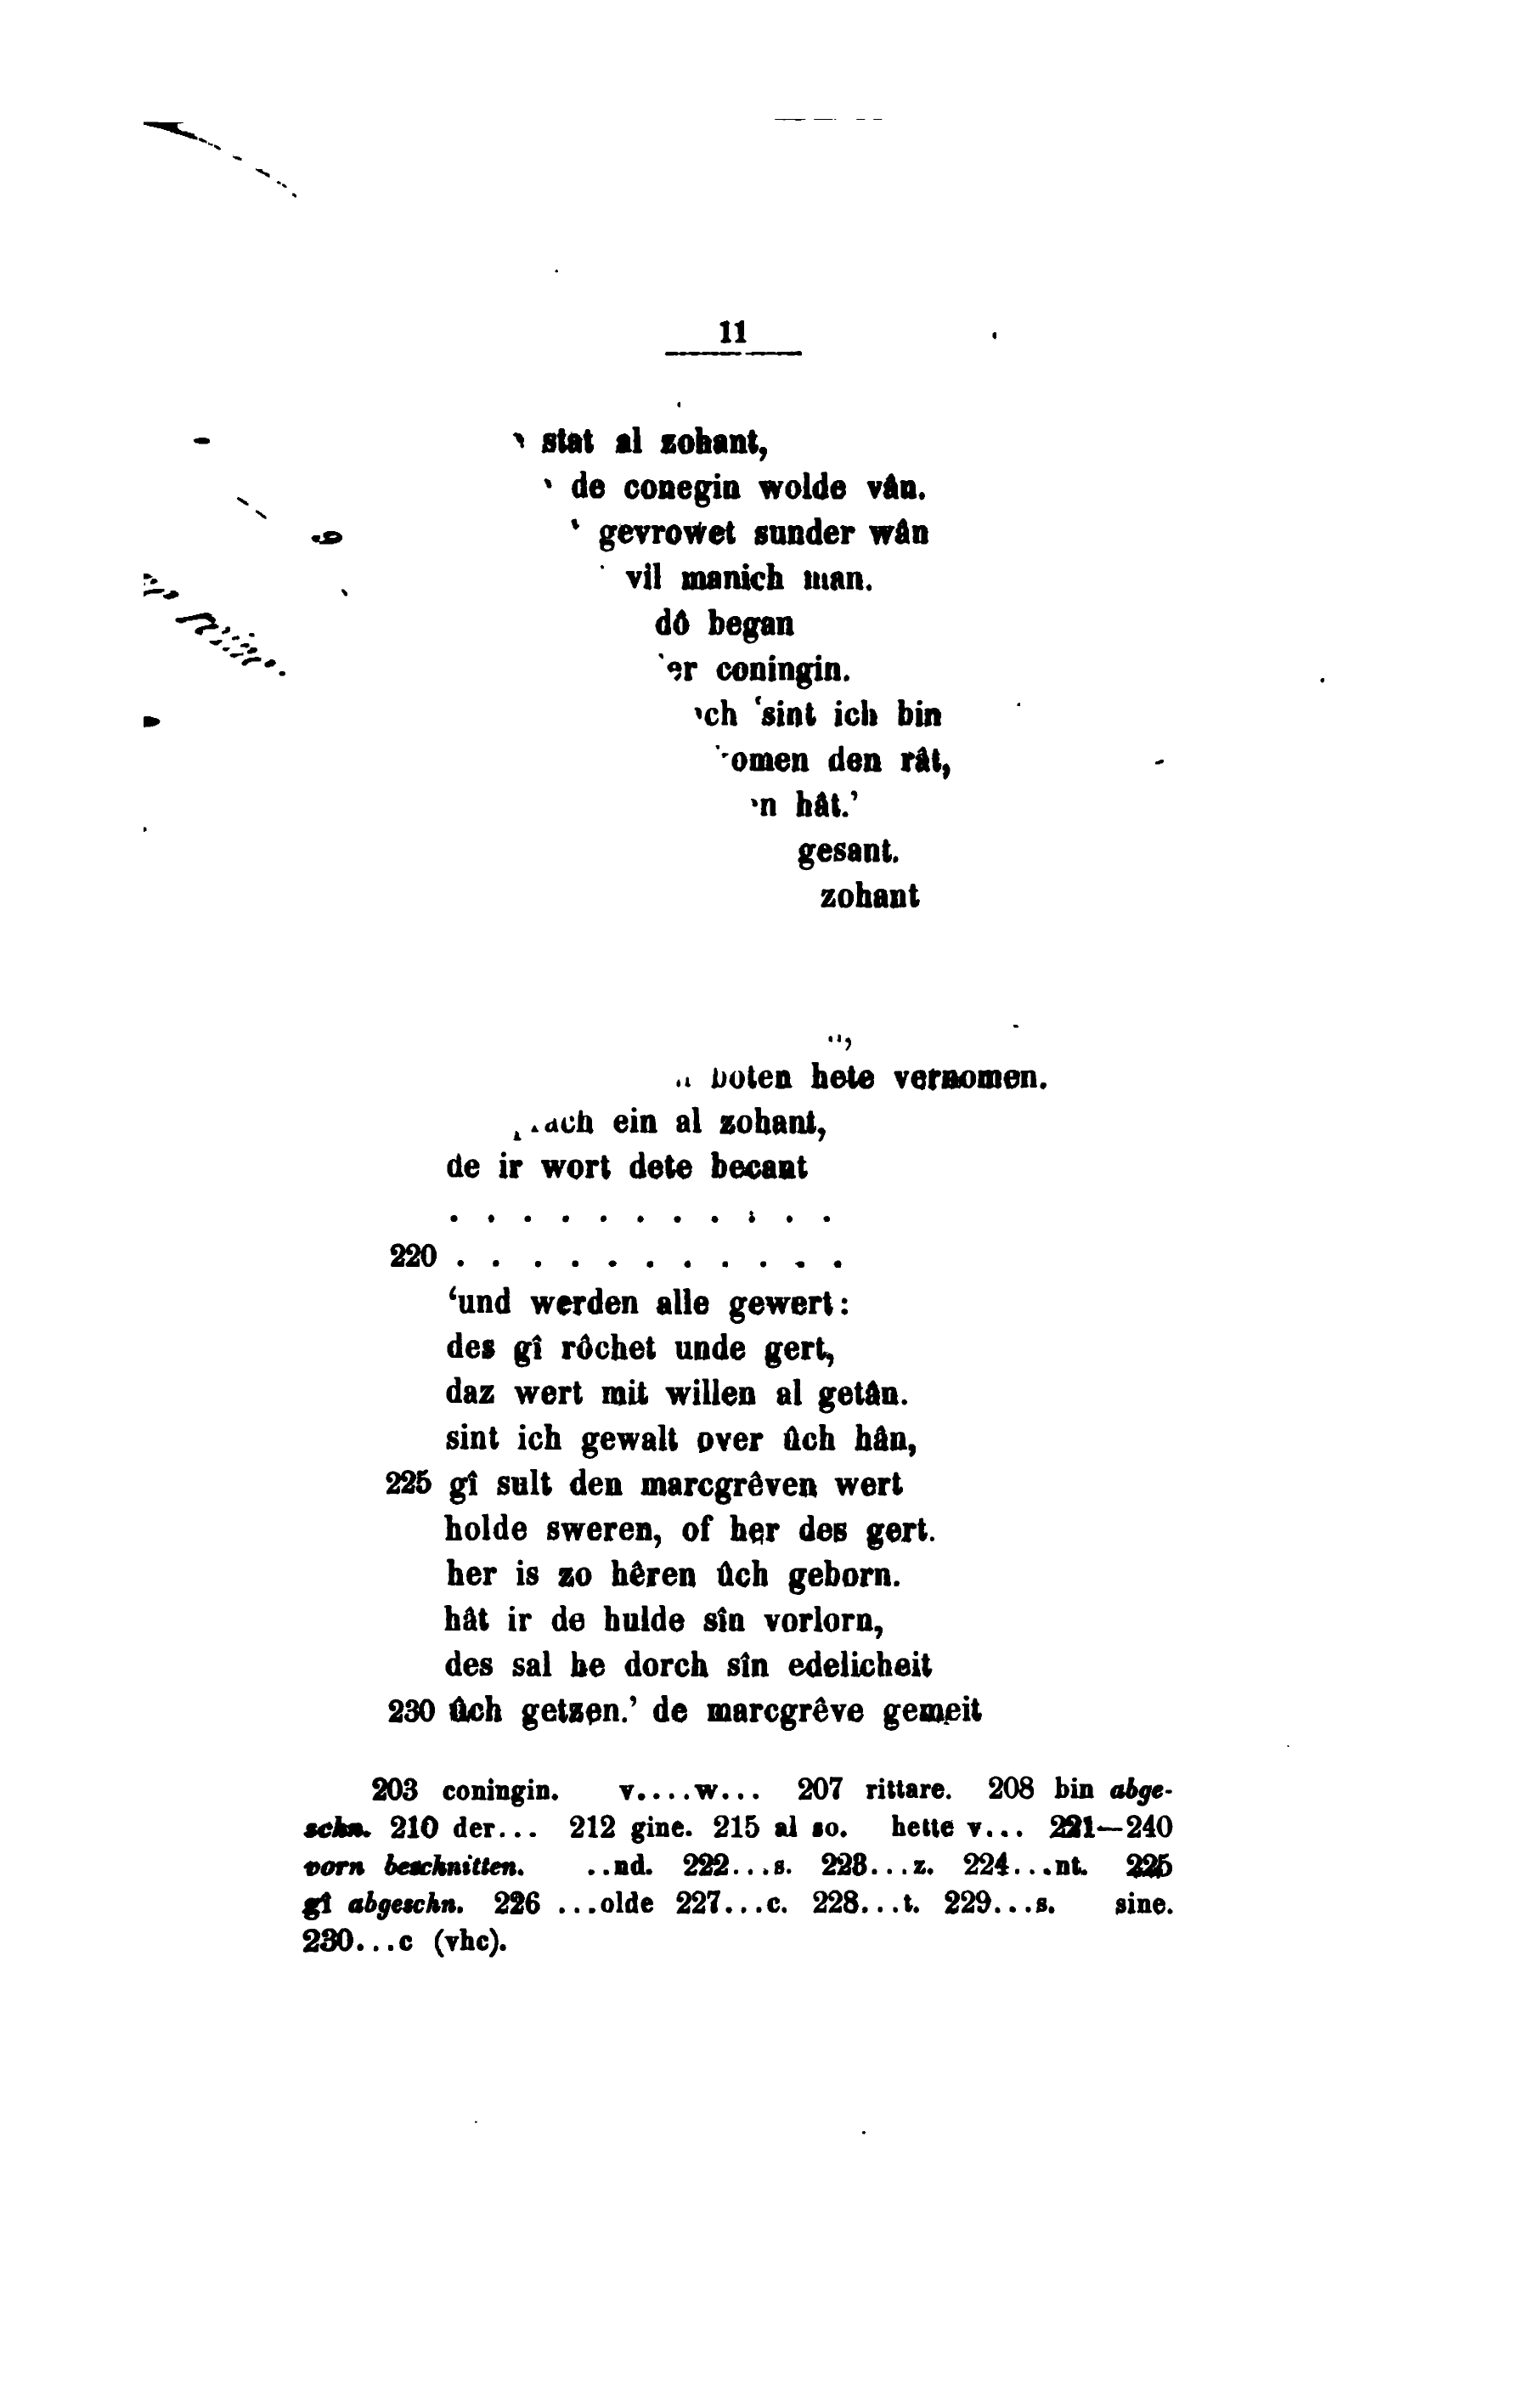 11
stat al zohant,
de conegin wolde vân.
gevrowet sunder wân
vil manich man.
dô began
coningin.
‘sint ich bin
den rât,
hât.’
gesant.
zohant
boten hete vernomen.
ein al zohant,
de ir wort dete becant
. . . . . . . . . . .
220 . . . . . . . . . . .
‘und werden alle gewert:
des gî rôchet unde gert,
daz wert mit willen al getân.
sint ich gewalt over ûch hân,
225 gî sult den marcgrêven wert
holde sweren, of her des gert.
her is zo hêren ûch geborn.
hât ir de hulde sîn vorlorn,
des sal he dorch sîn edelicheit
230 ûch getzen.’ de marcgrêve gemeit
203 coningin. v....w... 207 rittare. 208 bin abge-
schn. 210 der... 212 gine. 215 al so. hette v... 221—240
vorn beschnitten. ..nd. 222...s. 223...z. 224...nt. 225
gî abgeschn. 226 ...olde 227...c. 228...t. 229...s. sine.
230...c (vhc).